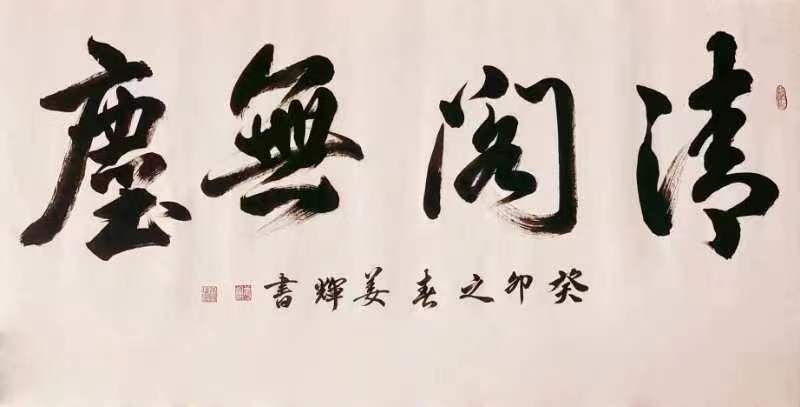 清阁無塵
癸卯之春姜輝書